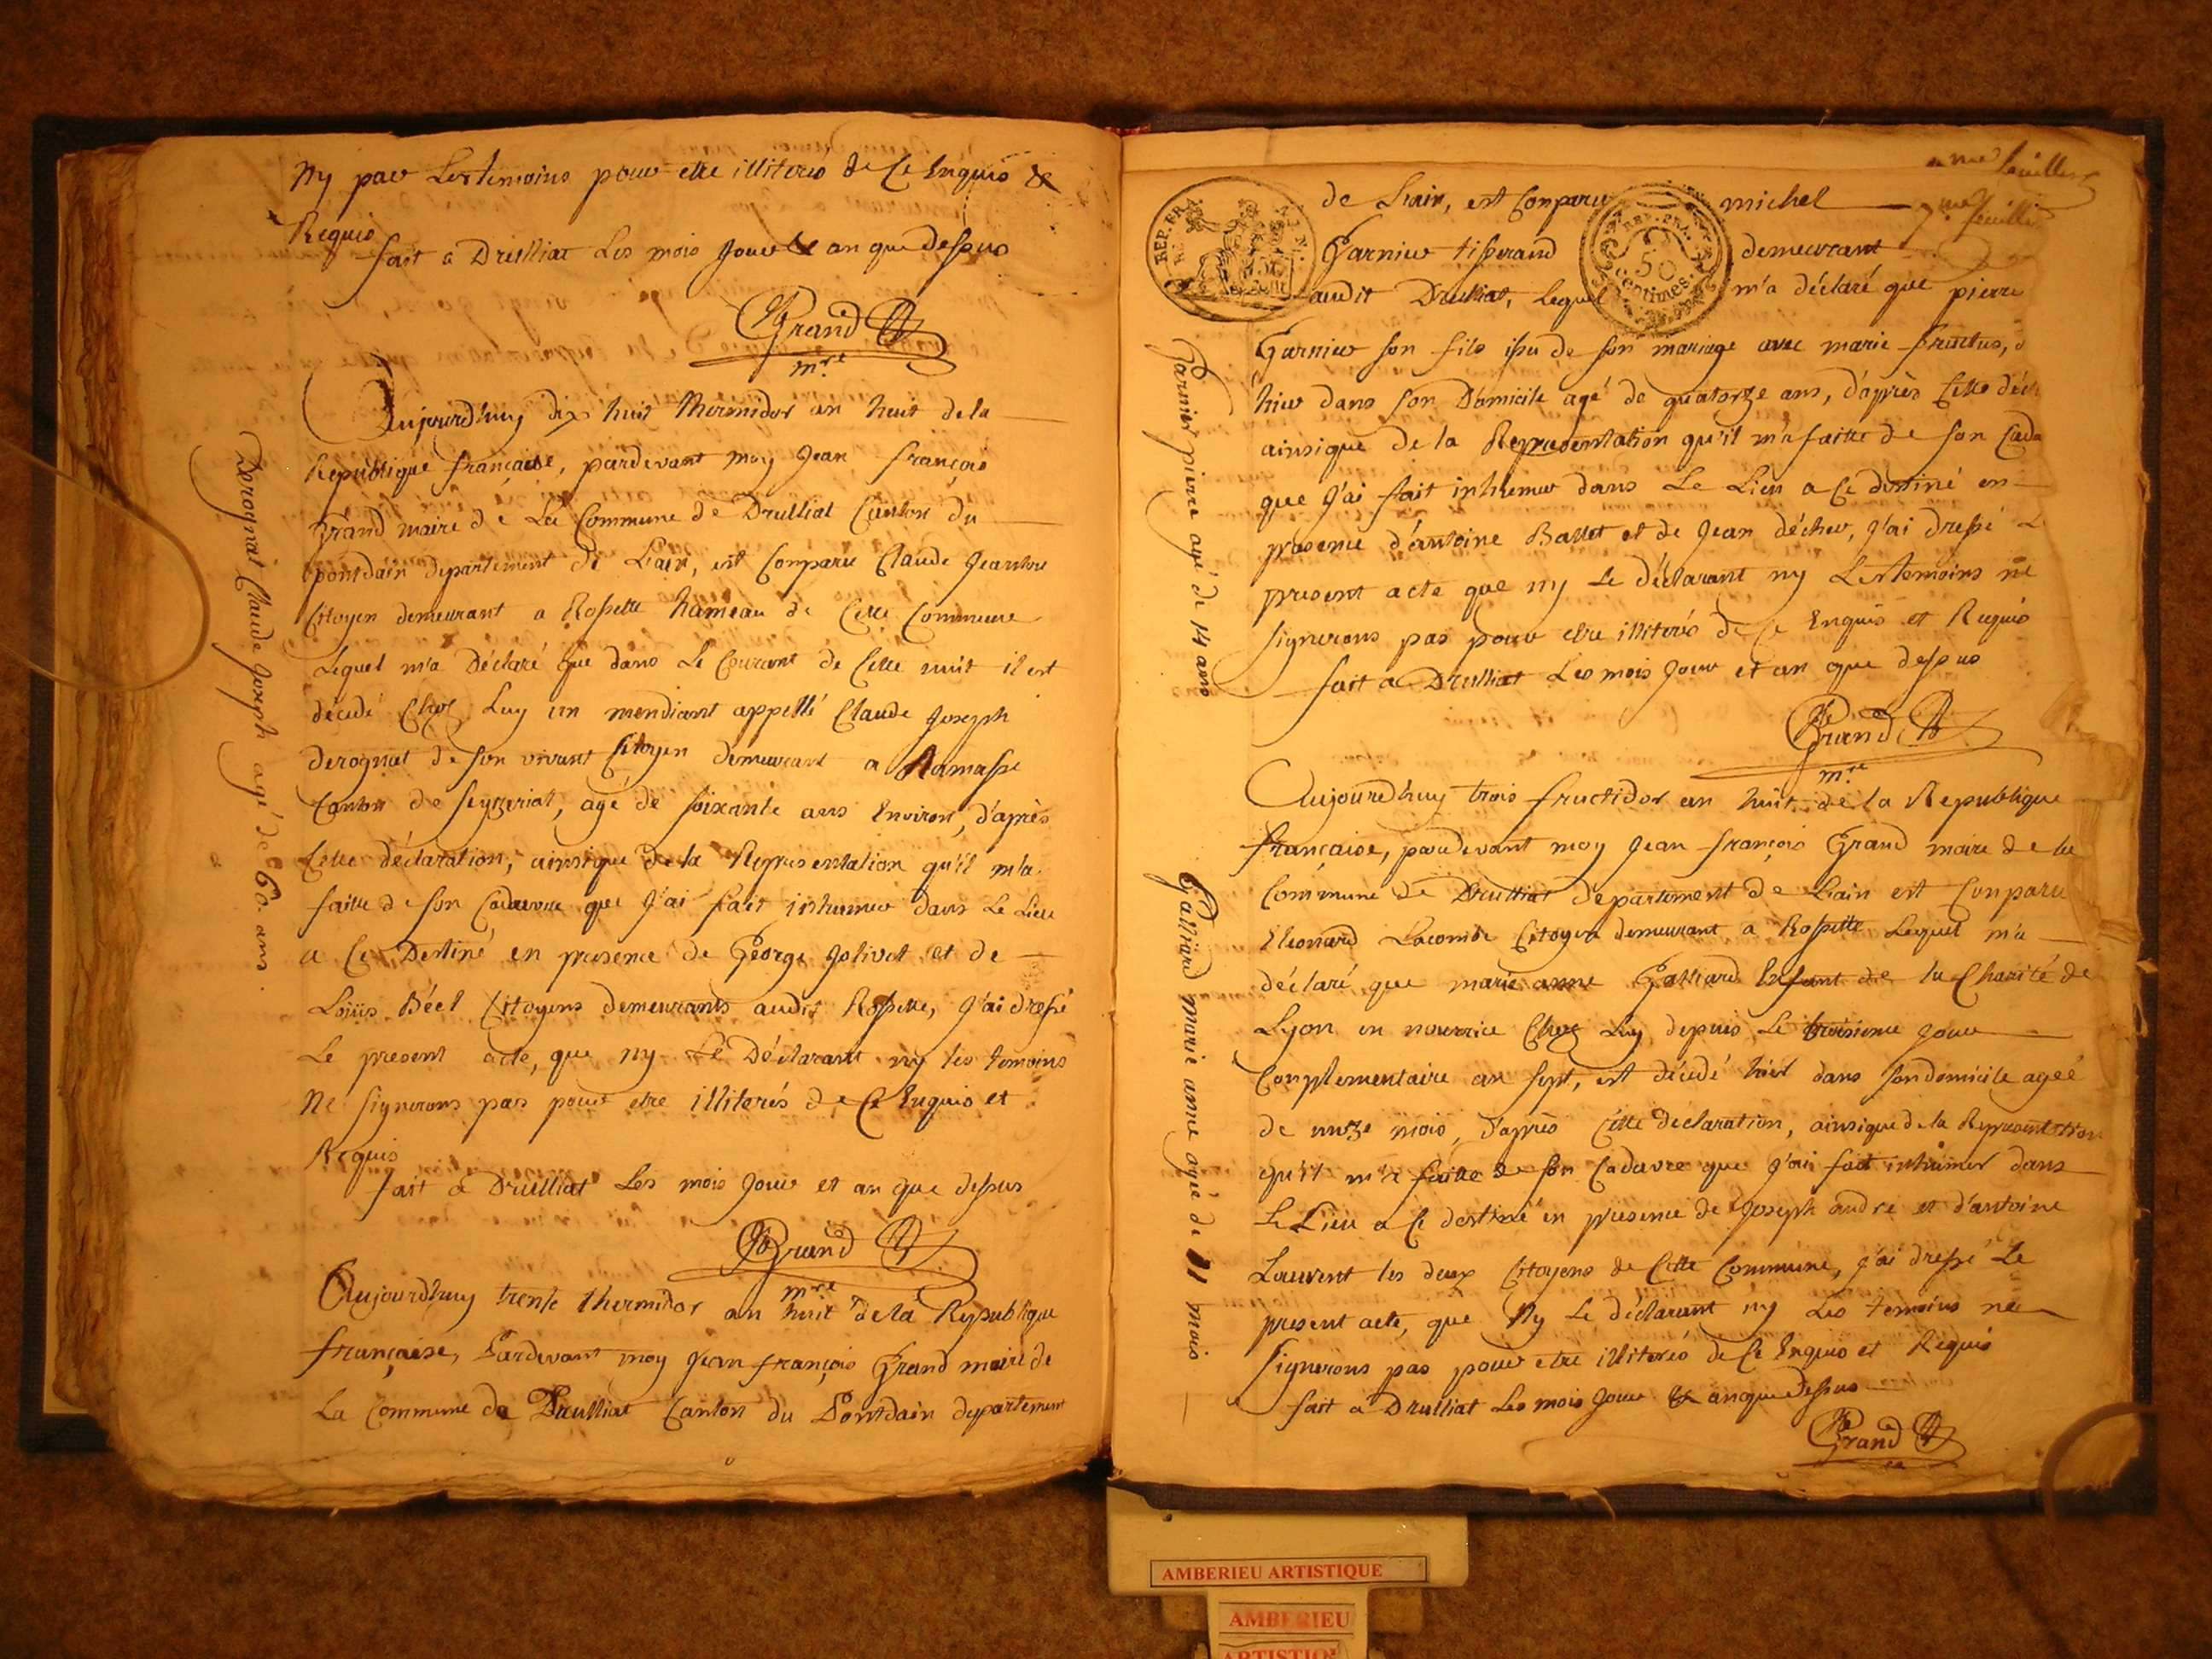 ny par Les temoins pour etre illiterés de Ce Enquis &
Requis
fait a Drulliat Les mois Jour & an que dessus
Grand
m.re
Aujourd'huy dix huit thermidor an huit de la
Republique française, pardevant moy Jean françois
Grand maire de La Commune de Drulliat Canton du
pontdain departement de L'ain, est Comparu Claude
Citoyen demeurant a Rossette hameau de Cette Commune
Lequel m'a Déclaré que dans Le Courant de Cette nuit il est
décédé Chez Luy un mendiant appellé Claude Joseph
derognat de son vivant Citoyen demeurant a Ramasse
Canton de Seyzeriat, agé de soixante ans Environ, d'après
Cette déclaration, ainsique de la Representation qu'il m'a
faitte de son Cadavre que J'ai fait inhumer dans Le Lieu
a Ce Destiné en presence de George Jolivet et de
Loüis Béel Citoyens demeurants audit Rossette, J'ai dressé
Le present acte, que ny Le Déclarant ny les temoins
Ne signerons pas pour etre illiterés de Ce Enquis et
Requis
fait a Drulliat Les mois Jour et an que dessus
Grand
m.re
Aujourd'huy trente thermidor an huit de la Republique
française, Pardevant moy Jean françois Grand maire de
La Commune de Drulliat Canton du Pontdain departement
Derognat Claude Joseph agé de 60. ans.
feuillet
7me feuillet
de L'ain, est Comparu michel
Garnier tisserand demeurant
audit Drulliat, Lequel m'a déclaré que pierre
Garnier son fils issu de son mariage avec marie fructus,
hier dans son Domicile agé de quatorze ans, d'après Cette décl
ainsique de la Representation qu'il m'a faitte de son Cada
que J'ai fait inhumer dans Le Lieu a Ce destiné en
presence d'antoine Ballet et de Jean décher, J'ai dressé L
present acte que ny Le déclarant ny Les temoins ne
signerons pas pour etre illiterés de Ce Enquis et Requis
fait a Drulliat Les mois Jour et an que dessus
Grand
m.re
Aujourd'huy trois fructidor an huit de la Republique
française, pardevant moy Jean françois Grand maire de la
Commune de Drulliat departement de L'ain est Comparu
Leonard Lacombe Citoyen demeurant a Rossette Lequel m'a
déclaré que marie anne Galliard Enfant de la Charité de
Lyon en nourrice Chez Luy depuis Le troisieme Jour
Complementaire an sept, est décédé hier dans son domicile agée
de unze mois, d'après Cette declaration, ainsique de la Representation
qu'il m'a faitte de son Cadavre que J'ai fait inhumer dans
Le Lieu a Ce destiné en presence de Joseph andré et d'antoine
Louvent les deux Citoyens de Cette Commune, J'ai dressé Le
present acte, que Ny Le déclarant ny Les temoins ne
signerons pas pour etre illiterés de Ce Enquis et Requis
fait a Drulliat Les mois Jour & an que dessus
Grand
Garnier pierre agé de 14 ans
Galliard marie anne agé de 11 mois
REP. FRA.
50
Centimes
AMBERIEU ARTISTIQUE
AMBERIEU
ARTISTIQ